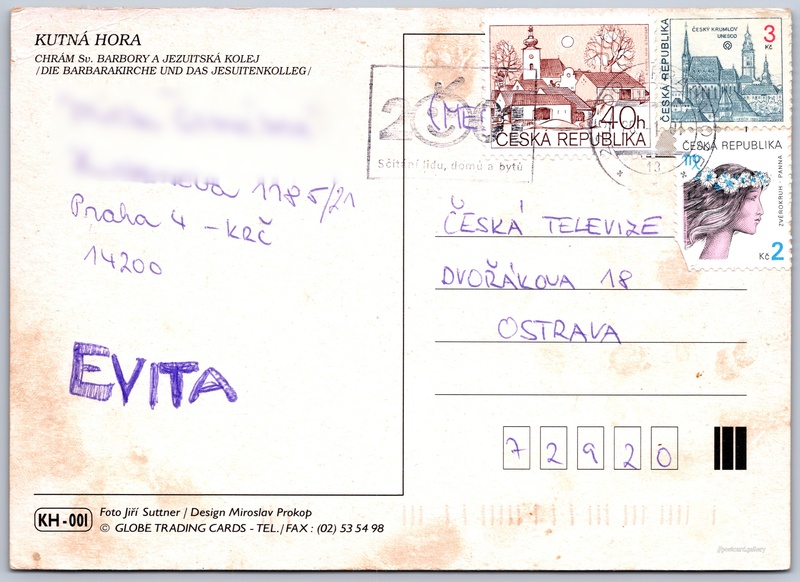 KUTNÁ HORA
CHRÁM Sv. BARBORY A JEZUITSKÁ KOLEJ
/DIE BARBARAKIRCHE UND DAS JESUITENKOLLEG/
1185/21
Praha 4 - KRČ
14200
EVITA
KH-001
Foto Jiří Suttner / Design Miroslav Prokop
© GLOBE TRADING CARDS - TEL./FAX: (02) 53 54 98
Sčítání lidu, domů a bytů
40h
ČESKÁ REPUBLIKA
ČESKÝ KRUMLOV
UNESCO
3
Kč
ČESKÁ REPUBLIKA
ČESKÁ REPUBLIKA
ZVĚROKRUH - PANNA
Kč 2
13
ČESKÁ TELEVIZE
DVOŘÁKOVA 18
OSTRAVA
7 2 9 2 0